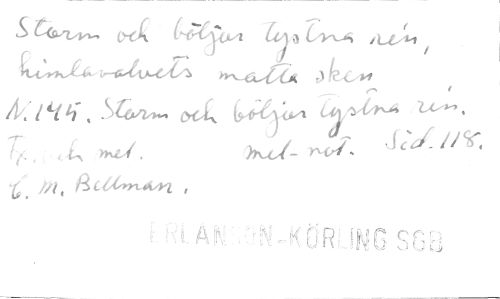 Storm och böljor tystna re'n,
himlavalvets matta sken
N. 145. Storm och böljor tystna re'n.
och mel. mel-not. Sid. 118.
C. M. Bellman.
ERLANSON-KÖRLING SGB